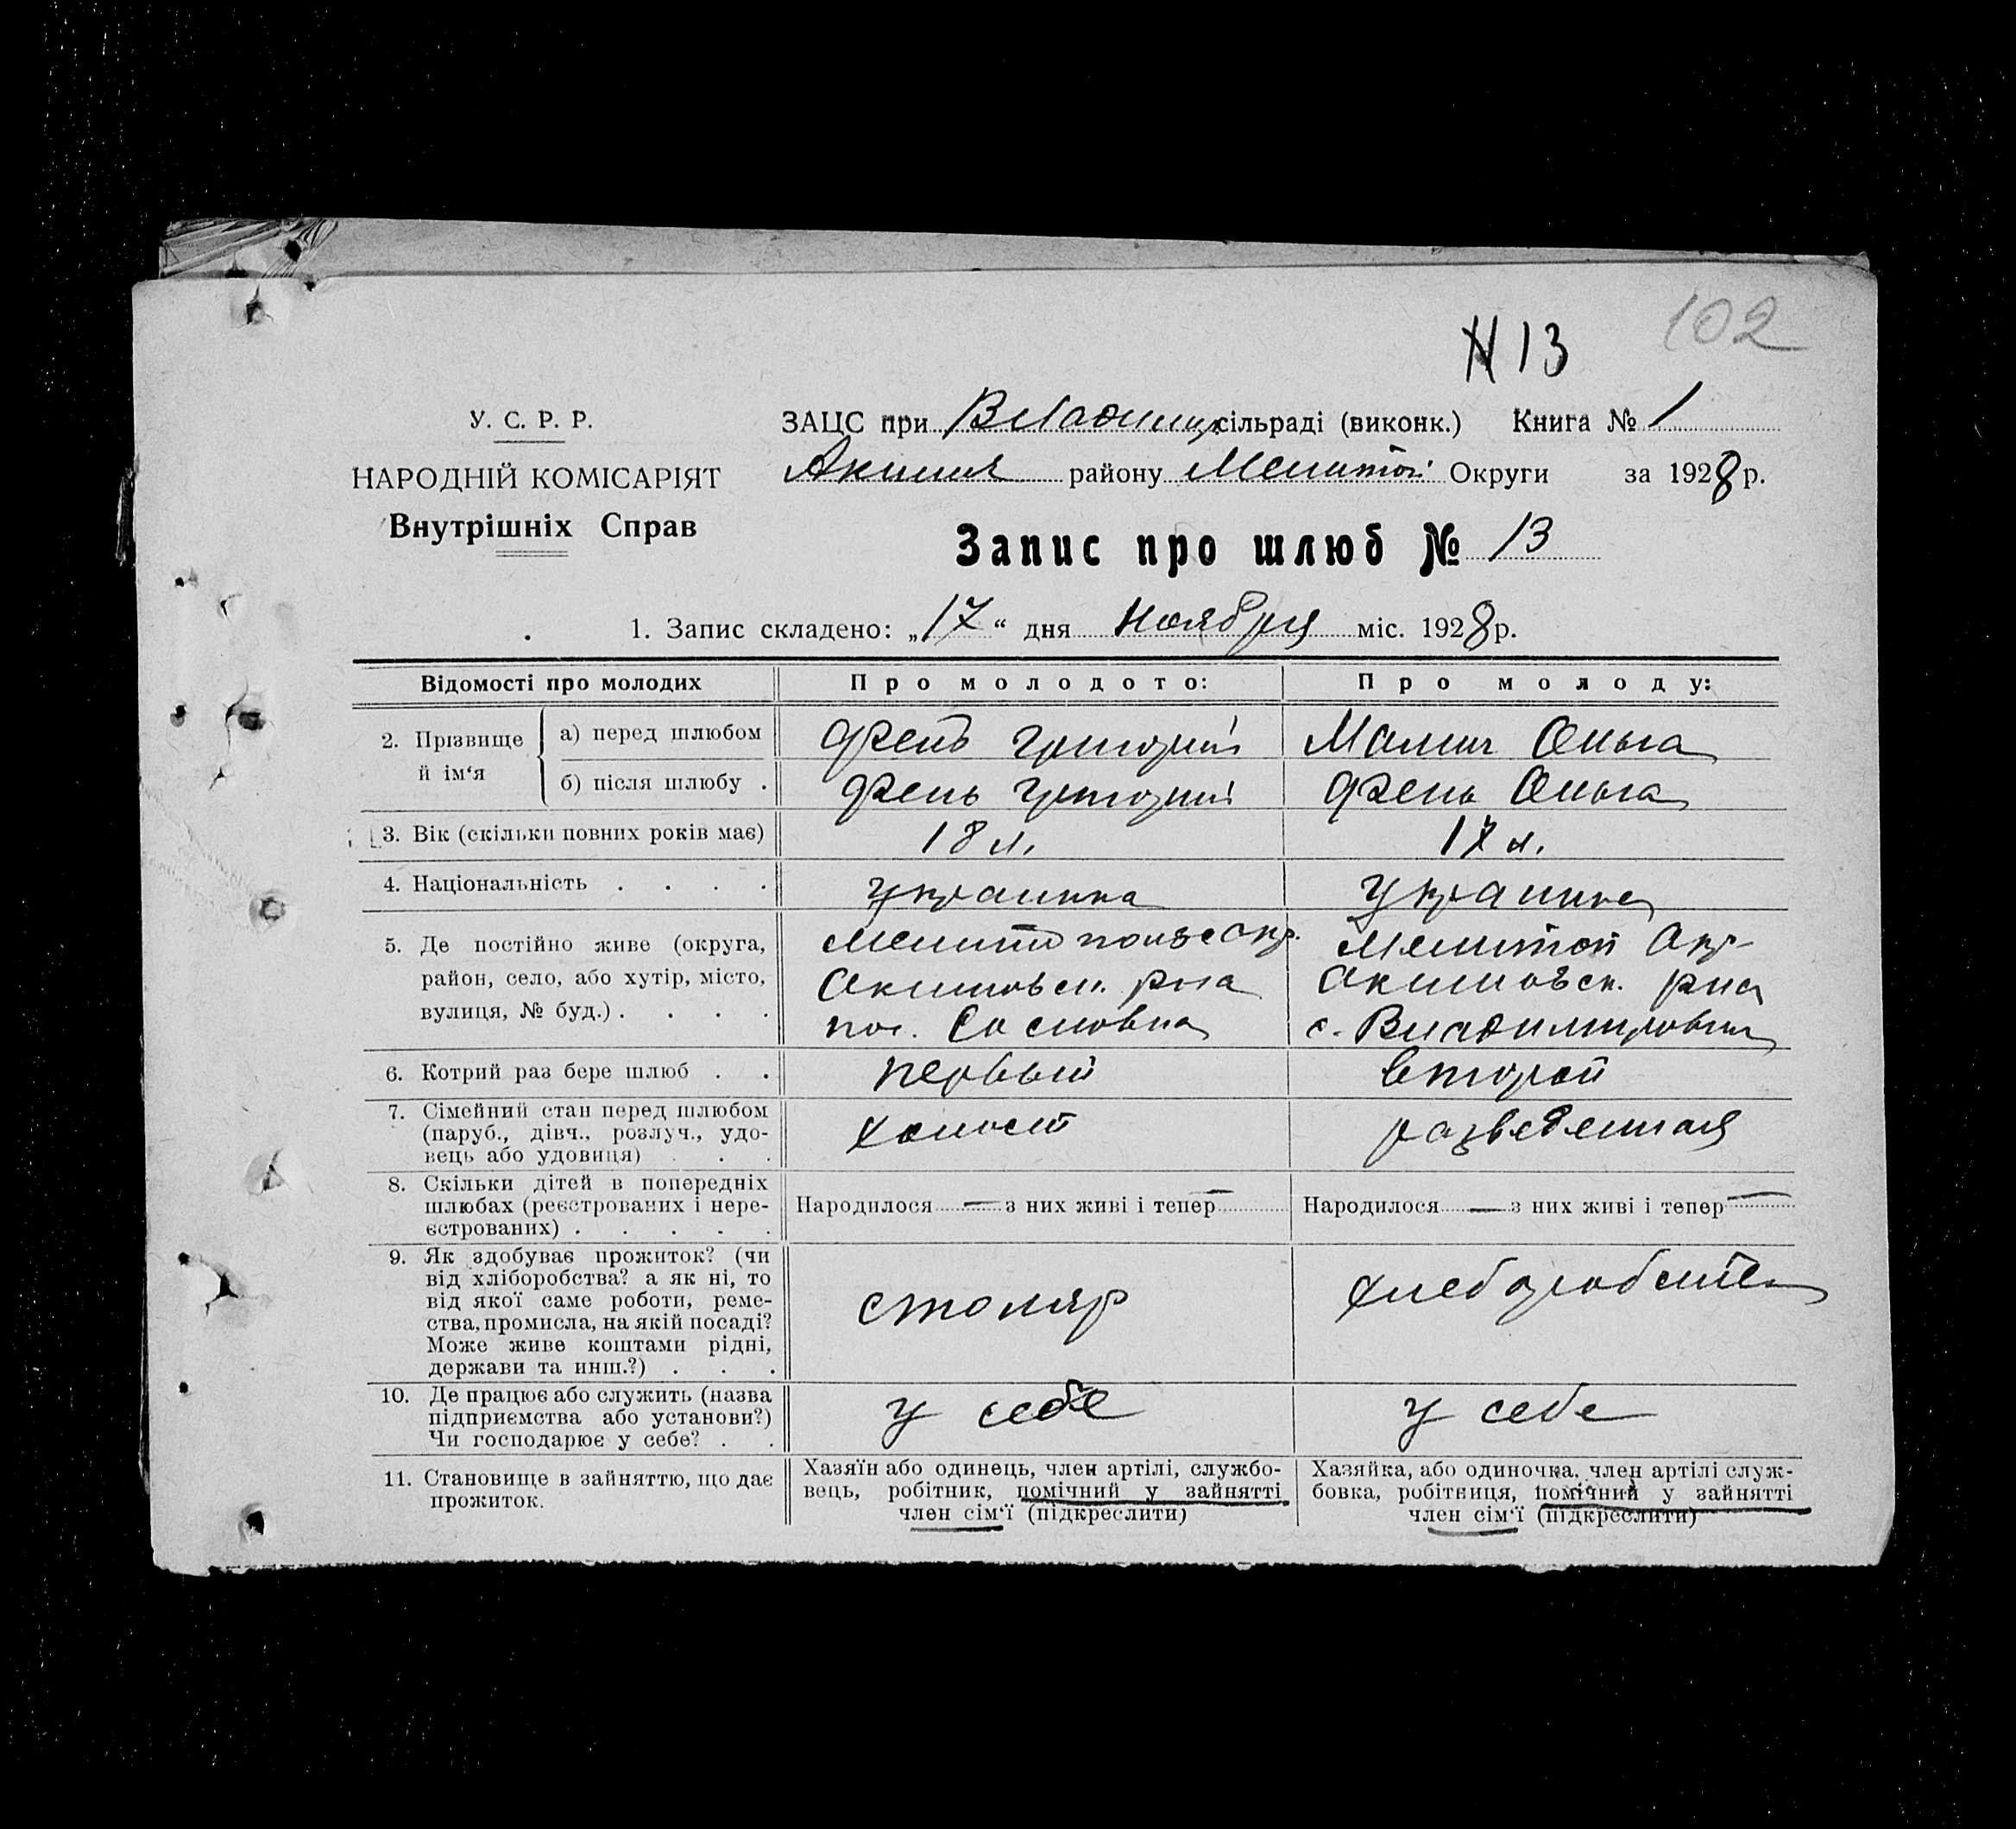 102
N 13
У. С. Р. Р.
НАРОДНІЙ КОМІСАРІЯТ
Внутрішніх Справ
ЗАЦС при Владимир сільраді (виконк.) Книга № 1
Аким района району Мелитоп. Округи за 1928 р.
Запис про шлюб № 13
1. Запис складено: „17“ дня Ноября міс. 1928 р.
Відомості про молодих
Про молодого:
Про молоду:
2. Прізвище й ім‘я
а) перед шлюбом
Фень Григорий
Ольга
б) після шлюбу .
Фень Григорий
Фень Ольга
3. Вік (скільки повних років має)
18 л.
17 л.
4. Національність . . . .
украинка
украинка
5. Де постійно живе (округа,
район, село, або хутір, місто,
вулиця, № буд.) . . . .
Мелитопольс окр.
Акимовск. рна
пос. Сосновка
Мелитоп Окр-
Акимовск. рна
с. Владимировка
6. Котрий раз бере шлюб . .
первый
второй
7. Сімейний стан перед шлюбом
(паруб., дівч., розлуч., удо-
вець або удовиця) . . .
холост
разведенная
8. Скільки дітей в попередніх
шлюбах (реєстрованих і нере-
єстрованих) . . . . .
Народилося — з них живі і тепер —
Народилося — з них живі і тепер —
9. Як здобуває прожиток? (чи
від хліборобства? а як ні, то
від якої саме роботи, реме-
ства, промисла, на якій посаді?
Може живе коштами рідні,
держави та инш.?) . . .
столяр
10. Де працює або служить (назва
підприємства або установи?)
Чи господарює у себе? . .
у себе
у себе
11. Становище в зайняттю, що дає
прожиток.
Хазяїн або одинець, член артілі, службо-
вець, робітник, помічний у зайнятті
член сім‘ї (підкреслити)
Хазяйка, або одиночка, член артілі служ-
бовка, робітниця, помічний у зайнятті
член сім‘ї (підкреслити)